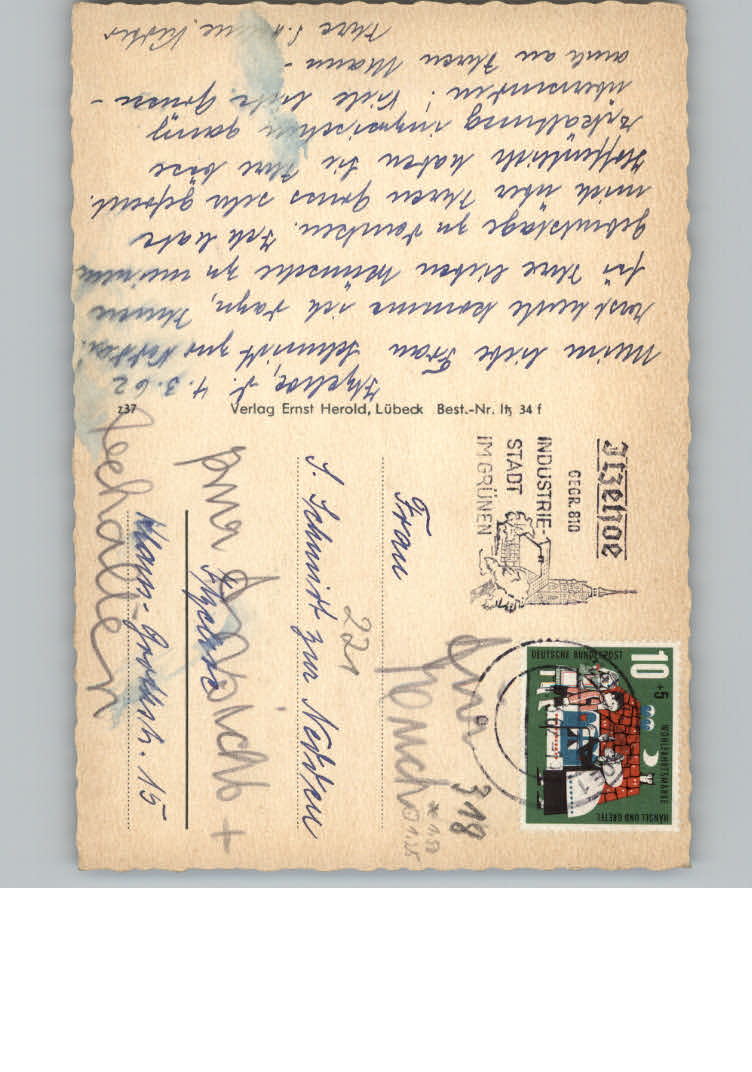 Itzehoe, d. 4. 3. 62
Meine liebe Frau Schmidt zur Nedden!
Erst heute komme ich dazu, Ihnen
für Ihre lieben Wünsche zu meinem
Geburtstage zu danken. Ich habe
mich über Ihren Gruss sehr gefreut.
Hoffentlich haben Sie Ihre böse
Erkältung inzwischen ganz
überwunden! Viele liebe Grüsse -
auch an Ihren Mann -
Ihre
z37
Verlag Ernst Herold, Lübeck Best.-Nr. Itz 34 f
Itzehoe
GEGR. 810
INDUSTRIE-
STADT
IM GRÜNEN
DEUTSCHE BUNDESPOST
10 +5
WOHLFAHRTSMARKE
HÄNSEL UND GRETEL
Frau
S. Schmidt zur Nedden
Itzehoe
Klaus-Grothstr. 15
221
318
* 1.50
0 1.25